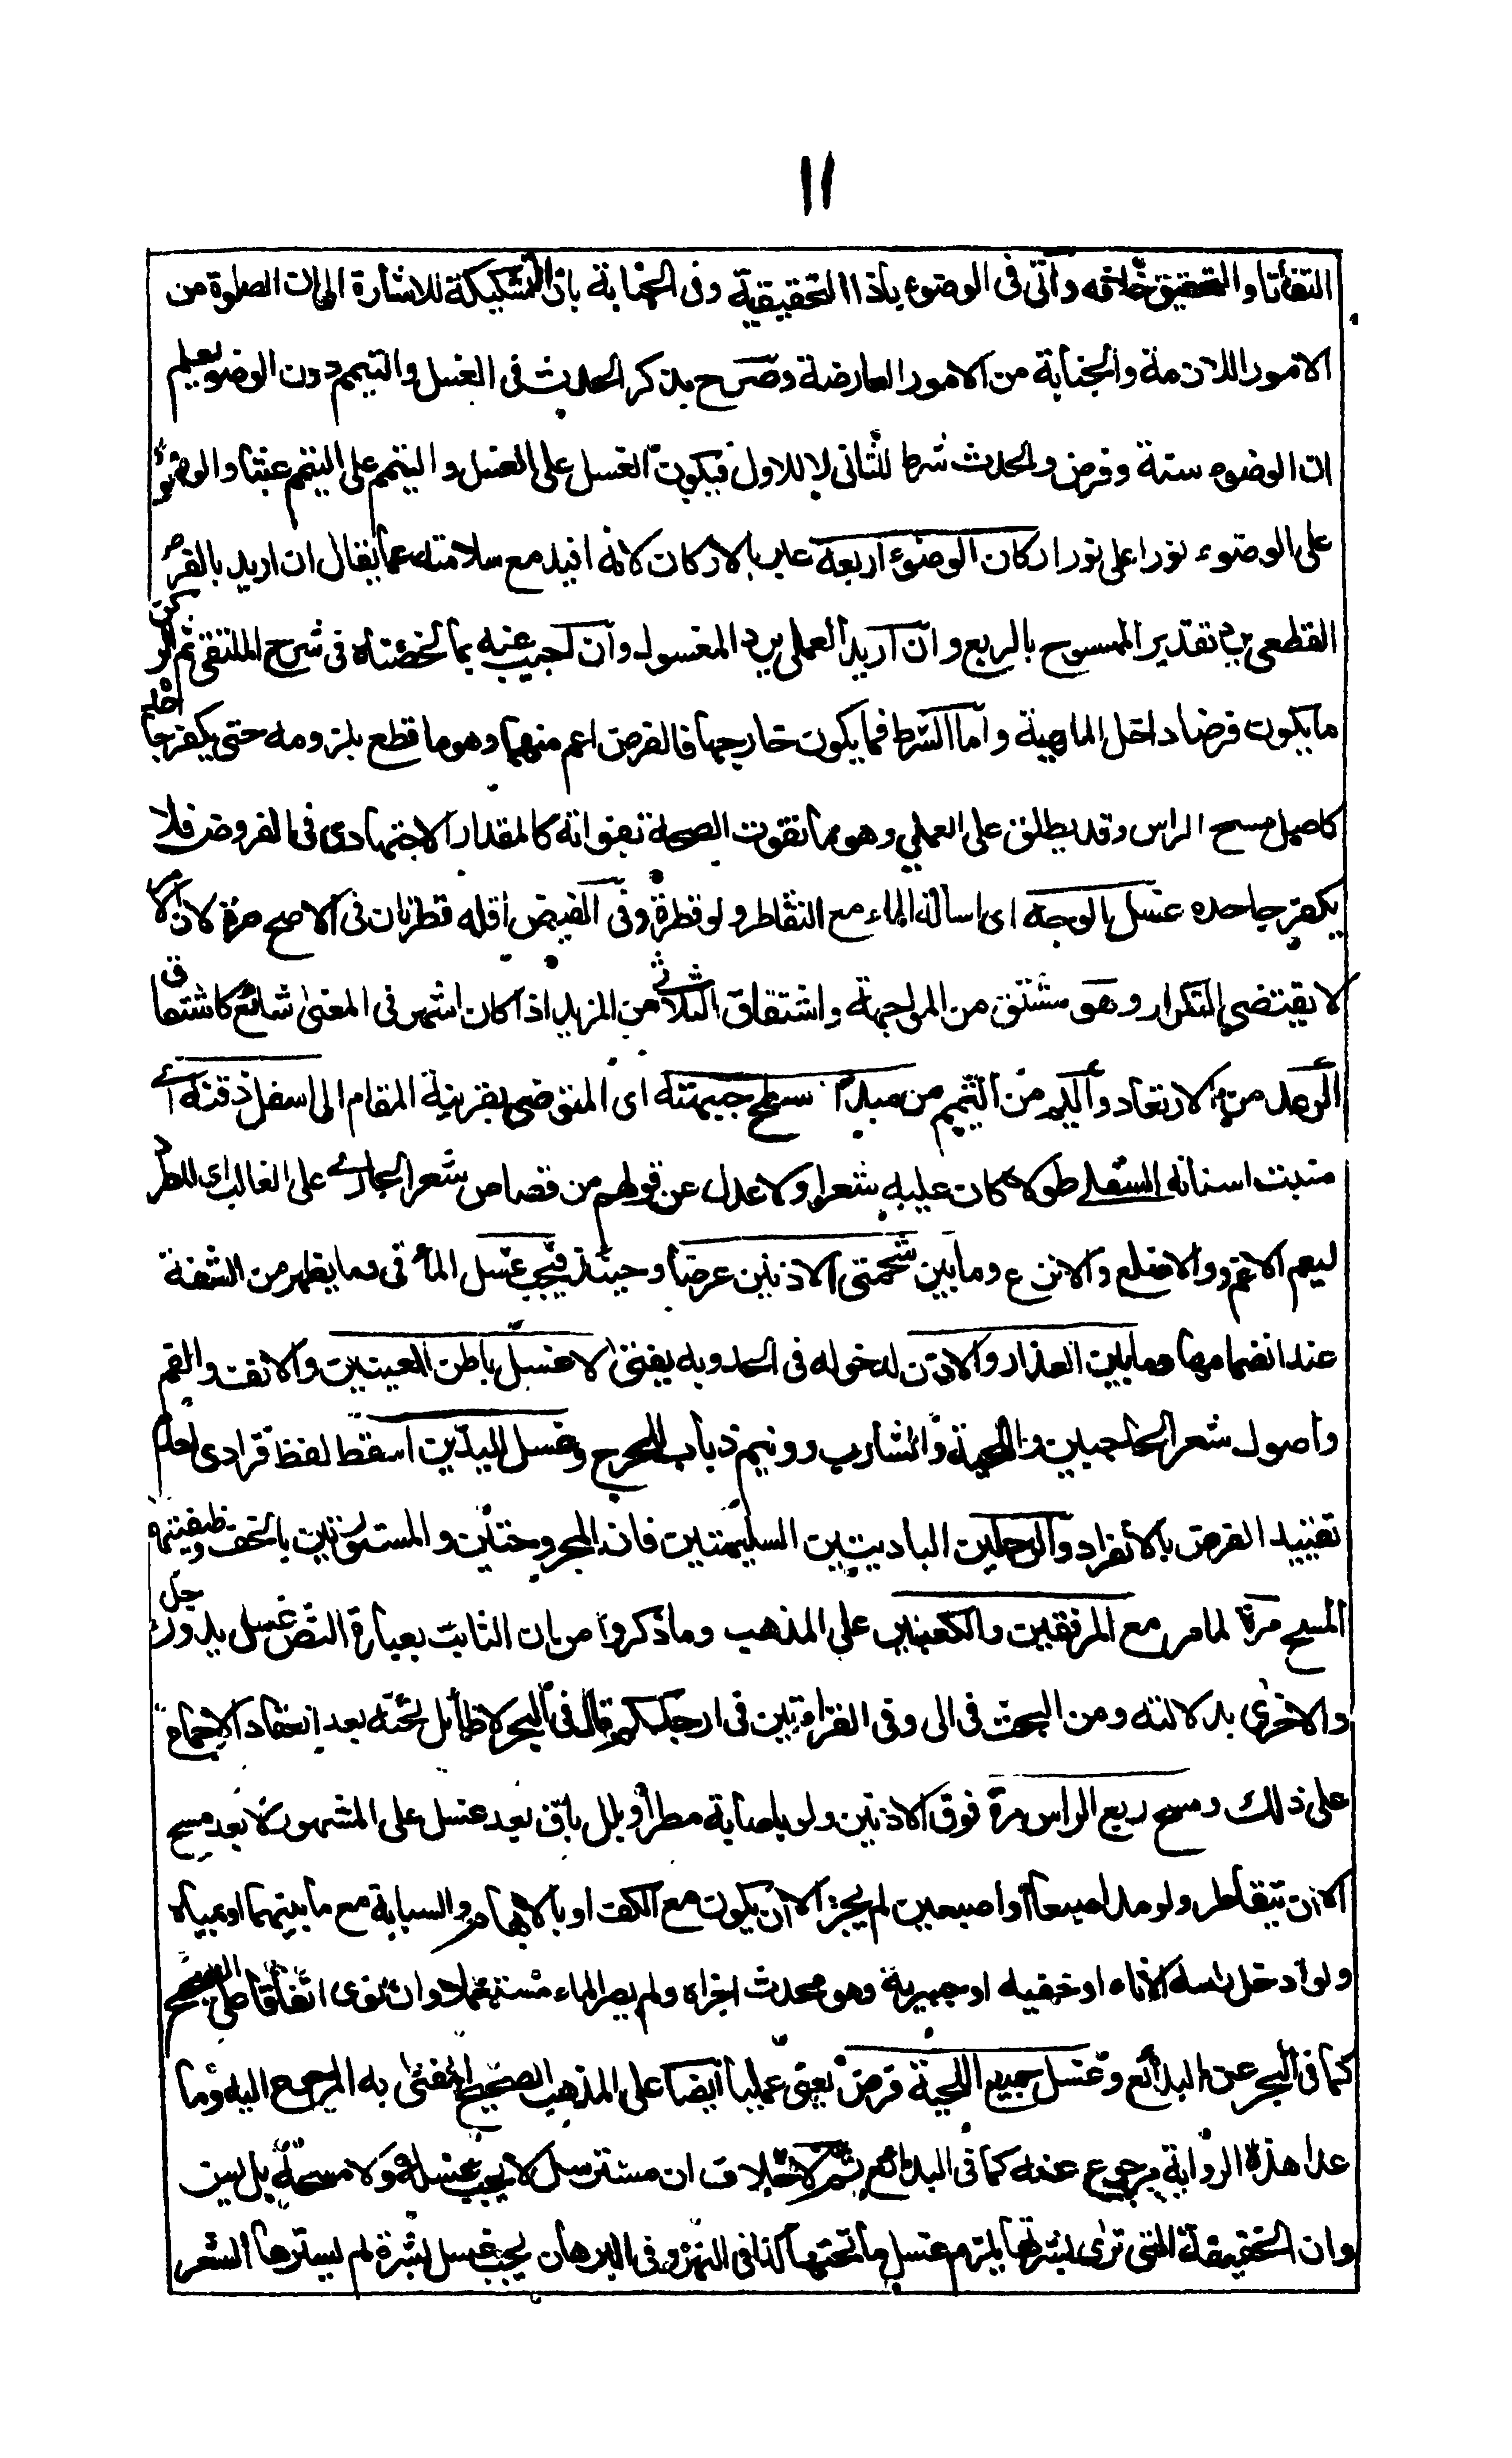 ١١
التفاتا والتحقيق خلافه وأتى فى الوضوء باذا التحقيقية وفى الجنابة بان التشكيكة للاشارة الى ان الصلوة من
الامور اللازمة والجنابة من الامور العارضة وصرح بذكر الحدث فى الغسل والتيمم دون الوضو ليعلم
ان الوضوء سنة وفرض والحدث شرط للثانى لا للاول فيكون الغسل على الغسل والتيمم على التيمم عبثا والوضوء
على الوضوء نورا على نور اركان الوضوء اربعة عبر بالاركان لانه افيد مع سلامته عما يقال ان اريد بالفرض
القطعى يرد تقدير الممسوح بالربع وان اريد العملى يرد المغسول وان اجيب عنه بما لخصناه فى شرح الملتقى ثم الركن
ما يكون فرضا داخل الماهية واما الشرط فما يكون خارجها فالفرض اعم منهما وهو ما قطع بلزومه حتى يكفر جاحده
كاصل مسح الراس وقد يطلق على العملي وهو ما تفوت الصحة بفواته كالمقدار الاجتهادى فى الفروض فلا
يكفر جاحده غسل الوجه اى اسالة الماء مع التقاطر ولو قطرة وفى الفيض اقله قطرتان فى الاصح مرة لان الامر
لا يقتضي التكرار وهو مشتق من المواجهة واشتقاق الثلاثى من المزيد اذا كان اشهر فى المعنى شائع كاشتقاق
الرعد من الارتعاد واليم من التيمم من مبدأ سطح جبهته اى المتوضى بقرينة المقام الى اسفل ذقنه اے
منبت اسنانه السفلے طولا كان عليه شعر اولا عدل عن قولهم من قصاص شعر الجارے على الغالب الى المطرد
ليعم الاغم والاصلع والانزع وما بين شحمتى الاذنين عرضا وحينئذ فيجب غسل المآقى وما يظهر من الشفة
عند انضمامها وما بين العذار والاذن لدخوله فى الحد وبه يفتى لا غسل باطن العينين والانف والفم
واصول شعر الحاجبين واللحية والشارب وونيم ذباب للحرج وغسل اليدين اسقط لفظ فرادى لعدم
تقييد الفرض بالانفراد والرجلين الباديتين السليمتين فان المجروحتين والمستورتين بالخف وظيفتهما
المسح مرة لما مر مع المرفقين والكعبين على المذهب وما ذكروا من ان الثابت بعبارة النص غسل يد ورجل
والاخرى بدلالته ومن البحث فى الى وفى القراءتين فى ارجلكم قال فى البحر لا طائل تحته بعد انعقاد الاجماع
على ذلك ومسح ربع الراس مرة فوق الاذنين ولو باصابة مطر أو بلل باق بعد غسل على المشهور لا بعد مسح
الا ان يتقاطر ولو مد اصبعا أو اصبعين لم يجز الا ان يكون مع الكف او بالابهام والسبابة مع ما بينهما او بمياه
ولو ادخل راسه الاناء او خفيه او جبيرية وهو محدث اجزاه ولم يصر الماء مستعملا وان نوى اتفاقا على الصحيح
كما فى البحر عن البدائع وغسل جميع اللحية فرض يعنى عمليا ايضا على المذهب الصحيح المفتى به المرجوع اليه وما
عدا هذه الرواية مرجوع عنه كما فى البدائع ثم لا خلاف ان مسترسل لا يجب غسله ولا مسحه بل يسن
وان الخفيفة التى ترى بشرتها يلزم غسل ما تحتها كذا فى النهر وفى البرهان يجب غسل بشرة لم يسترها الشعر